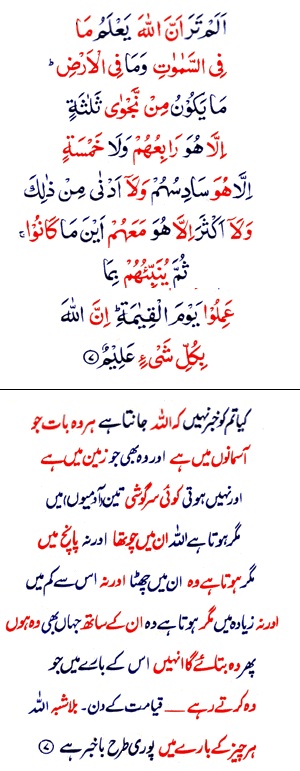 اَلَمْ تَرَ اَنَّ اللّٰهَ يَعْلَمُ مَا
فِی السَّمٰوٰتِ وَمَا فِی الْاَرْضِ ؕ
مَا يَكُوْنُ مِنْ نَّجْوٰی ثَلٰثَةٍ
اِلَّا هُوَ رَابِعُهُمْ وَلَا خَمْسَةٍ
اِلَّا هُوَ سَادِسُهُمْ وَلَاۤ اَدْنٰی مِنْ ذٰلِكَ
وَلَاۤ اَكْثَرَ اِلَّا هُوَ مَعَهُمْ اَيْنَ مَا كَانُوْا ۚ
ثُمَّ يُنَبِّئُهُمْ بِمَا
عَمِلُوْا يَوْمَ الْقِيٰمَةِ ؕ اِنَّ اللّٰهَ
بِكُلِّ شَیْءٍ عَلِيْمٌ ﴿۷﴾
کیا تم کو خبر نہیں کہ اللہ جانتا ہے ہر وہ بات جو
آسمانوں میں ہے اور وہ بھی جو زمین میں ہے
اور نہیں ہوتی کوئی سرگوشی تین (آدمیوں) میں
مگر ہوتا ہے اللہ ان میں چوتھا اور نہ پانچ میں
مگر ہوتا ہے وہ ان میں چھٹا اور نہ اس سے کم میں
اور نہ زیادہ میں مگر ہوتا ہے وہ ان کے ساتھ جہاں بھی وہ ہوں
پھر وہ بتائے گا انہیں اس کے بارے میں جو
وہ کرتے رہے ــــ قیامت کے دن۔ بلاشبہ اللہ
ہر چیز کے بارے میں پوری طرح باخبر ہے ﴿۷﴾